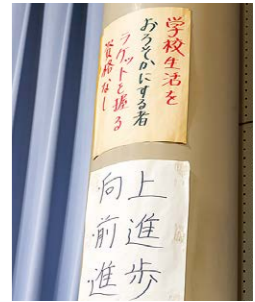 学校生活を
おろそかにする者
ラケットを振る
資格なし
向上
前進
進歩